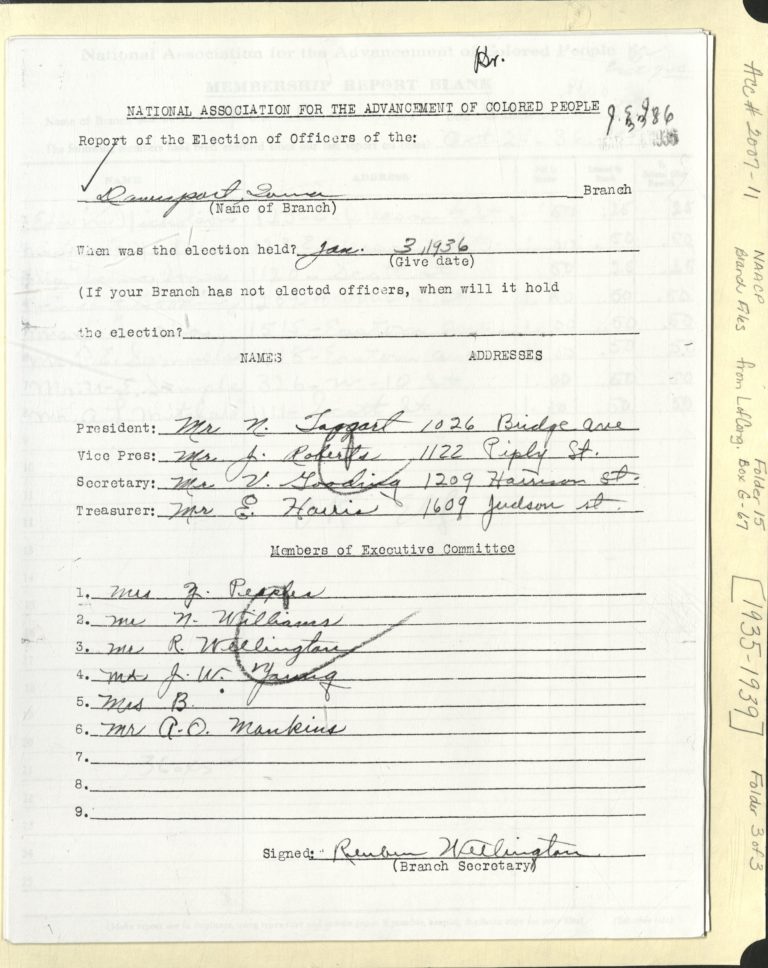 Br.
NATIONAL ASSOCIATION FOR THE ADVANCEMENT OF COLORED PEOPLE
Report of the Election of Officers of the:
Davenport, Iowa Branch
(Name of Branch)
When was the election held? Jan. 3, 1936
(Give date)
(If your Branch has not elected officers, when will it hold
the election?
NAMES ADDRESSES
President: Mr N. Taggart 1026 Bridge Ave
Vice Pres: Mr. J. Roberts 1122 Piply St.
Secretary: V. Gooding 1209 Harrison St.
Treasurer: Mr E. Harris 1609 Judson st.
Members of Executive Committee
1. Mrs Z. Peeples
2. N. Williams
3. R. Wellington
4. J. W. Young
5. Mrs B.
6. Mr A.O. Mankins
7.
8.
9.
Signed: Reuben Wellington
(Branch Secretary)
Acc# 2007-11
NAACP
Branch Files from LofCong. Box G-67
Folder 15
[1935-1939]
Folder 3 of 3
National Association for the Advancement of Colored People
MEMBERSHIP REPORT BLANK
NAME ADDRESS